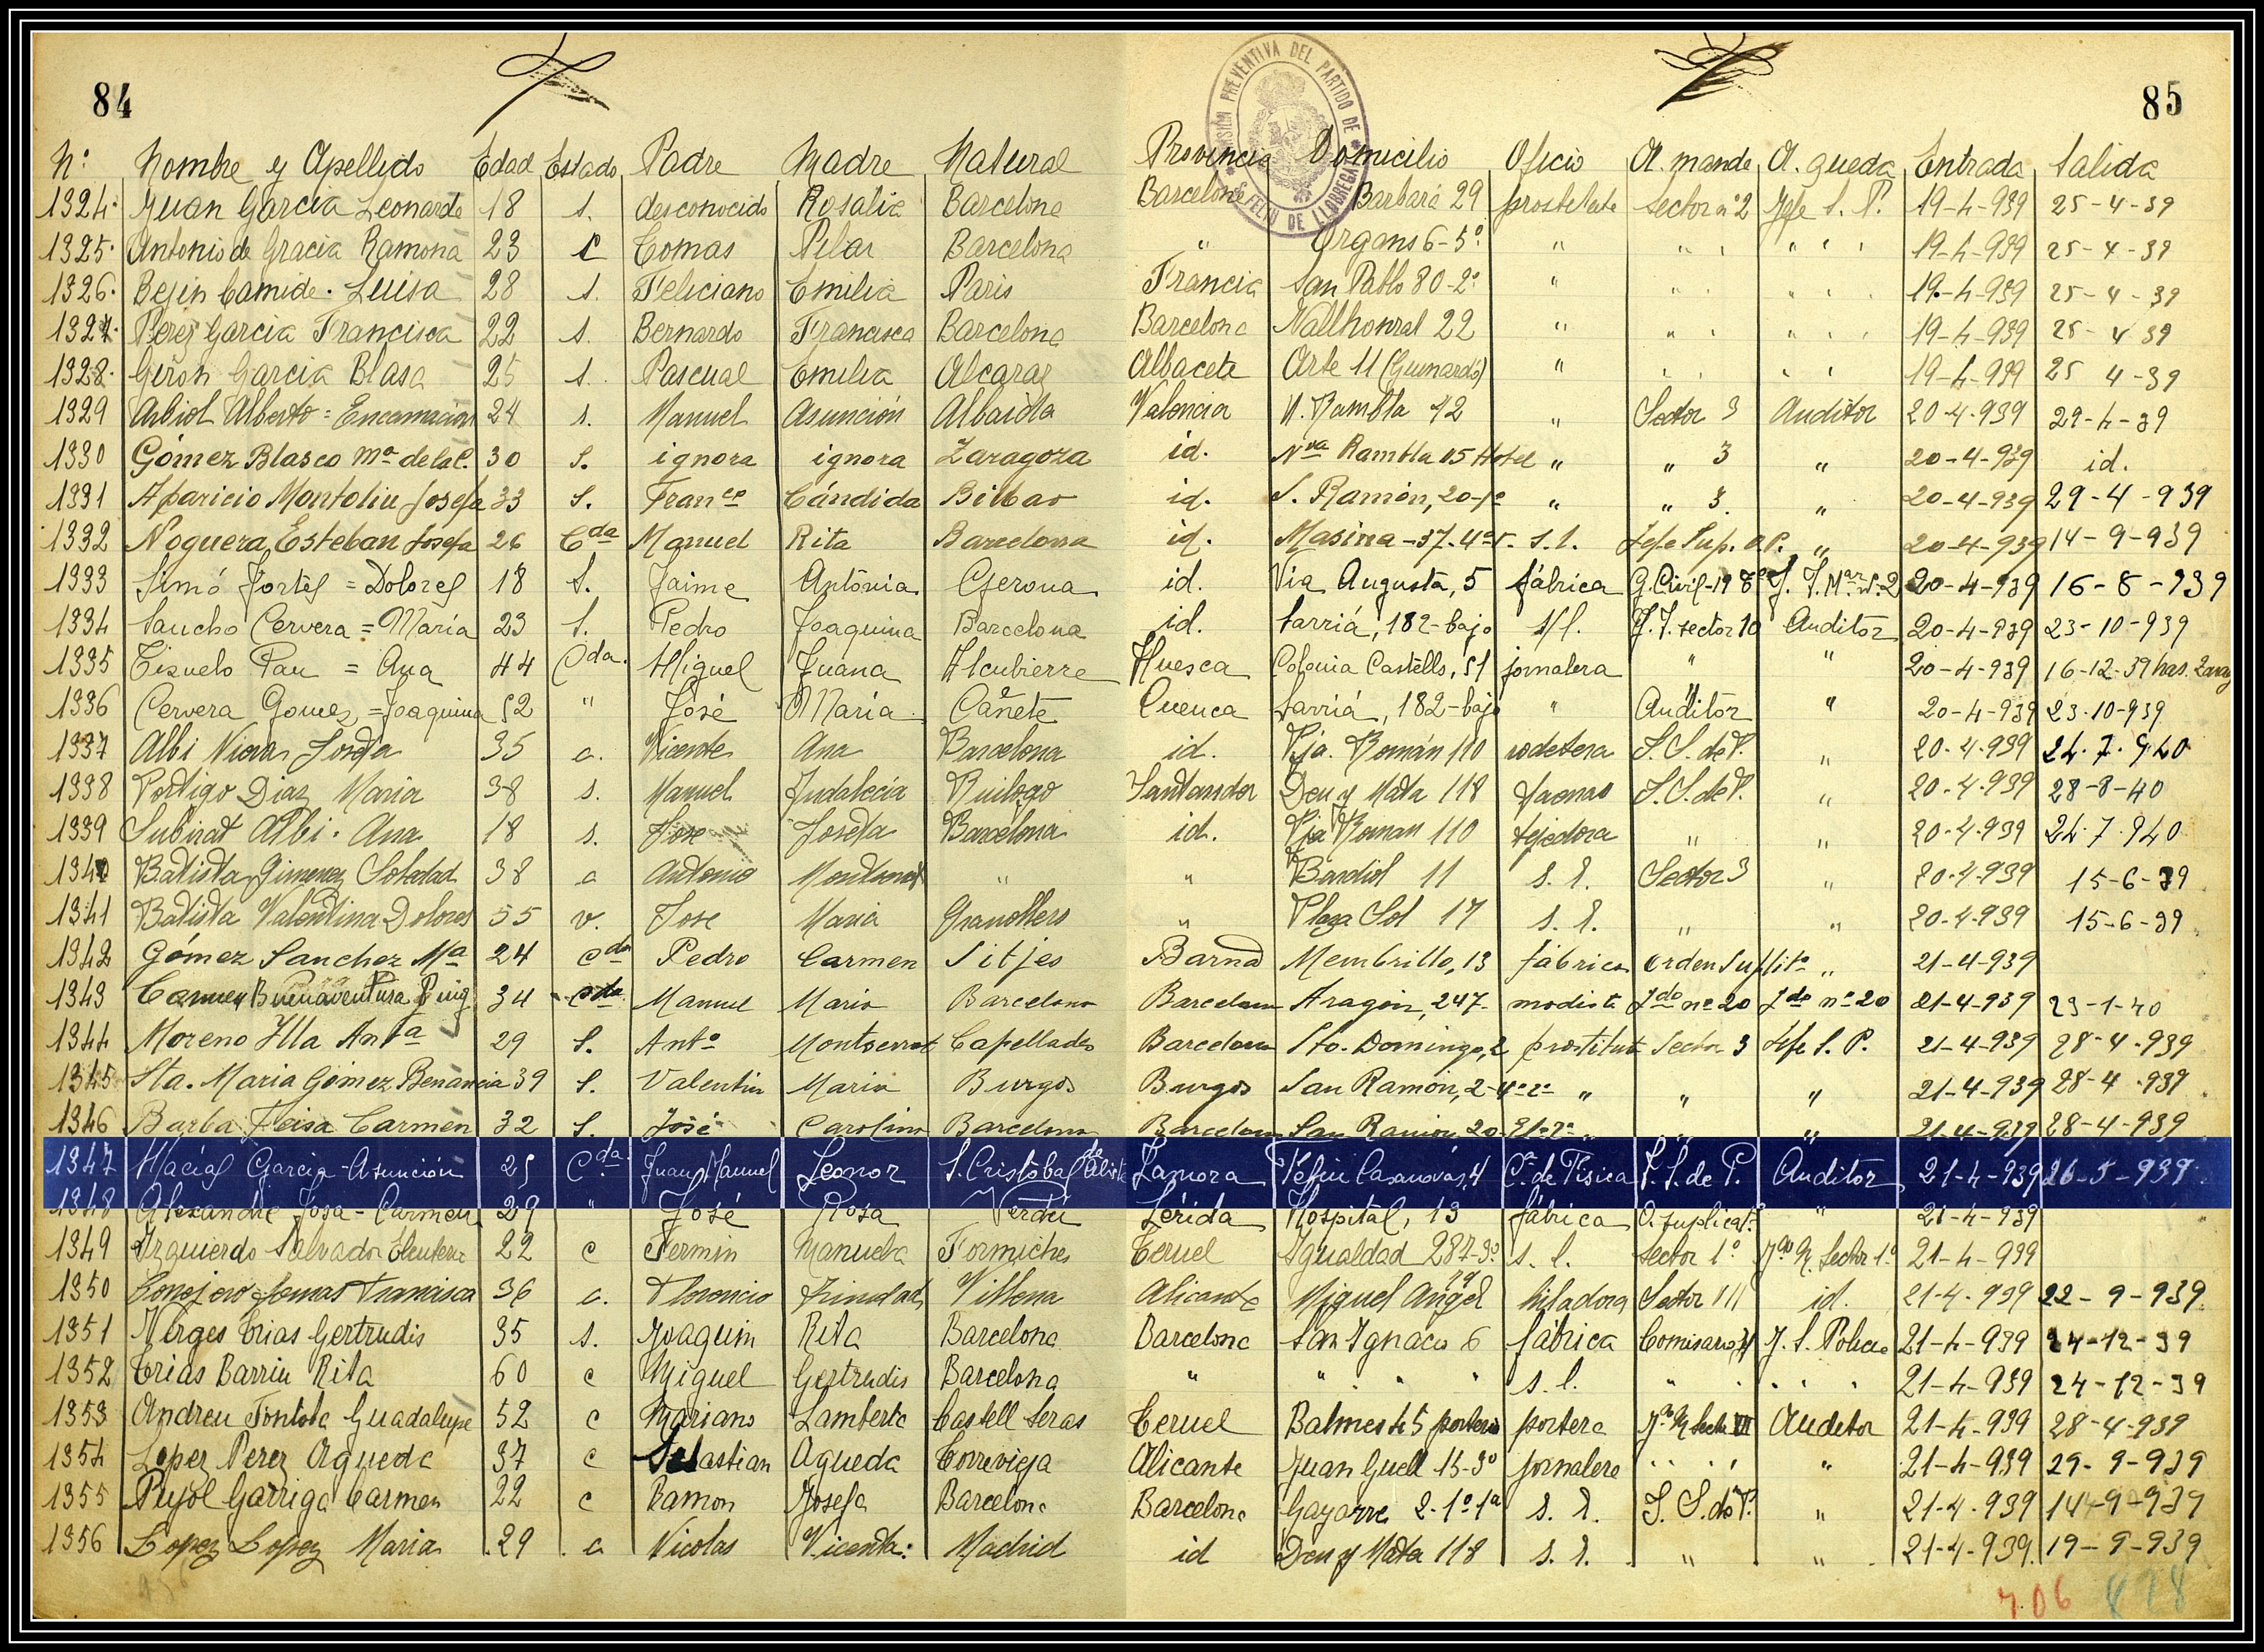 84
85
PRISIÓN PREVENTIVA DEL PARTIDO DE S. FELIU DE LLOBREGAT
Nº Nombre y Apellido Edad Estado Padre Madre Natural Provincia Domicilio Oficio A. mande A. queda Entrada Salida
1324. Juan Garcia Leonarda 18 s. desconocido Rosalia Barcelona Barcelona Barbará 29 Sector nº 2 Jefe S. P. 19-4-939 25-4-39
1325. Antonio de Gracia Ramona 23 Tomas Pilar Barcelona " Organs 6-5º " " " " " " 19-4-939 25-4-39
1326. Bejin Camide. Luisa 28 s. Feliciano Emilia Paris Francia San Pablo 80-2º " " " " " " 19-4-939 25-4-39
1327. Perez Garcia Francisca 22 s. Bernardo Francisca Barcelona Barcelona 22 " " " " " " 19-4-939 25-4-39
1328. Girón Garcia Blasa 25 s. Pascual Emilia Alcaraz Albacete Arte 11 (Guinardó) " " " " " 19-4-939 25 4-39
1329 Arbiol Alberto = Encarnación 24 s. Manuel Asunción Albaida Valencia N. Rambla 42 " Sector 3 Auditor 20-4-939 29-4-39
1330 Gómez Blasco Mª de la C. 30 S. ignora ignora Zaragoza id. Nva Rambla 15 Hotel " " 3 " 20-4-939 id.
1331 Aparicio Montoliu Josefa 33 S. Franco Cándida Bilbao id. S. Ramón, 20-1º " " 3. " 20-4-939 29-4-939
1332 Noguera Esteban Josefa 26 Cda Manuel Rita Barcelona id. Masina-37-4º s. l. Jefe Sup. O.P. " 20-4-939 14-9-939
1333 Simó Fortes = Dolores 18 S. Jaime Antonia Gerona id. Via Augusta, 5 fábrica G. Civil-19 20-4-939 16-8-939
1334 Sancho Cervera = María 23 S. Pedro Joaquina Barcelona id. Sarriá, 182-bajo s/l. sector 10 Auditor 20-4-939 23-10-939
1335 Tisuelo Pau = Ana 44 Cda. Miguel Juana Alcubierre Huesca Colonia Castells, 51 jornalera " " 20-4-939 16-12-39
1336 Cervera Gomez = Joaquina 52 " José María Cañete Cuenca Sarriá, 182-bajo " Auditor " 20-4-939 23-10-939
1337 Albi Josefa 35 c. Vicente Ana Barcelona id. Vja. Román 110 rodetera S. S. de P. " 20-4-939 24-7-940
1338 Portigo Diaz Maria 38 s. Manuel Indalecia Ruilogo Santander Deu y Mata 118 faenas S. S. de P. " 20-4-939 28-8-40
1339 Subirat Albi. Ana 18 s. Jose Josefa Barcelona id. Vja Roman 110 tejedora " " 20-4-939 24-7-940
1340 Batista Gimenez Soledad 38 c Antonio Montserrat " " 11 s. l. Sector 3 " 20-4-939 15-6-39
1341 Batista Valentina Dolores 55 v. Jose Maria Granollers " Plaza Sol 17 s. l. " " 20-4-939 15-6-39
1342 Gómez Sanchez Mª 24 Cda Pedro Carmen Sitjes Barna Membrillo, 13 fábrica orden Suplito " 21-4-939
1343 Carmen Buenaventura Puig 34 Cda Manuel Maria Barcelona Barcelona Aragón, 247- modista Jdo nº 20 Jdo nº 20 21-4-939 23-1-40
1344 Moreno Illa Antª 29 S. Antº Montserrat Capellades Barcelona Sto. Domingo, 2 prostituta Sector 3 Jefe S. P. 21-4-939 28-4-939
1345 Sta. Maria Gómez Benancia 39 S. Valentin Maria Burgos Burgos San Ramón, 2-4º-2ª " " " 21-4-939 28-4-939
1346 Barba Feisa Carmen 32 S. José Carolina Barcelona Barcelona San Ramón 20 " " " 21-4-939 28-4-939
1347 Macías Garcia-Asunción 25 Cda Juan Manuel Leonor S. Cristóbal de Aliste Zamora Féliu Casanovas, 4 Cª de Tisica S. S. de P. Auditor 21-4-939 26-5-939
1348 Alexandre Josa-Carmen 29 " José Rosa Verdú Lérida Hospital, 13 fábrica O. suplicat. " 21-4-939
1349 Izquierdo Salvador Eleuteria 22 c Fermin Manuela Formiche Teruel Igualdad 287-3º s. l. Sector 1º Sector 1º 21-4-939
1350 Conejero Tomas Francisca 36 c. Florencio Trinidad Villena Alicante Miguel Angel 79 hiladora Sector III id. 21-4-939 22-9-939
1351 Verges Trias Gertrudis 35 s. Joaquin Rita Barcelona Barcelona San Ignacio 6 fábrica Comisaria J. S. Policia 21-4-939 24-12-39
1352 Trias Barriu Rita 60 c Miguel Gertrudis Barcelona " " " " s. l. " " " " " 21-4-939 24-12-39
1353 Andreu Fontola Guadalupe 52 c Mariano Lamberta Castell Seras Teruel Balmes 45 porteria portera Auditor 21-4-939 28-4-939
1354 Lopez Perez Agueda 37 c Sebastian Agueda Torrevieja Alicante Juan Guell 15-3º jornalera " " " " " 21-4-939 29-9-939
1355 Pujol Garriga Carmen 22 c Ramon Josefa Barcelona Barcelona Gayarre 2-1º-1ª s. l. S. S. de P. " 21-4-939 14-9-939
1356 Lopez Lopez Maria 29 c Nicolas Vicenta Madrid id Deu y Mata 118 s. l. " " 21-4-939 19-9-939
706 828